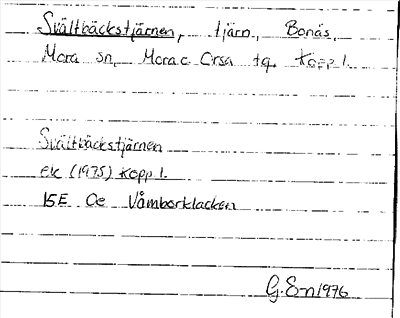 Svältbäckstjärnen, tjärn, Bonäs,
Mora sn, Mora o. Orsa tg. Kopp l.
Svältbäckstjärnen
ek (1975) Kopp l.
15E Oe Våmborklacken
G. E-n 1976